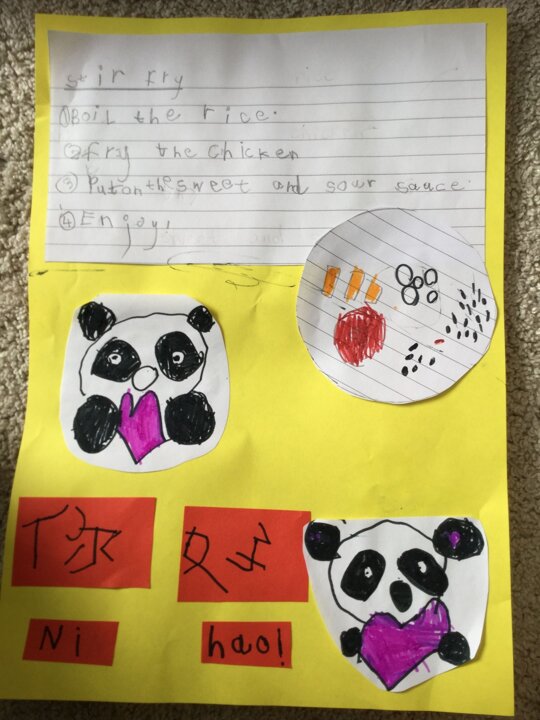 stir fry
① Boil the rice.
② fry the chicken
③ Put on the sweet and sour sauce.
④ Enjoy!
你 好
Ni hao!